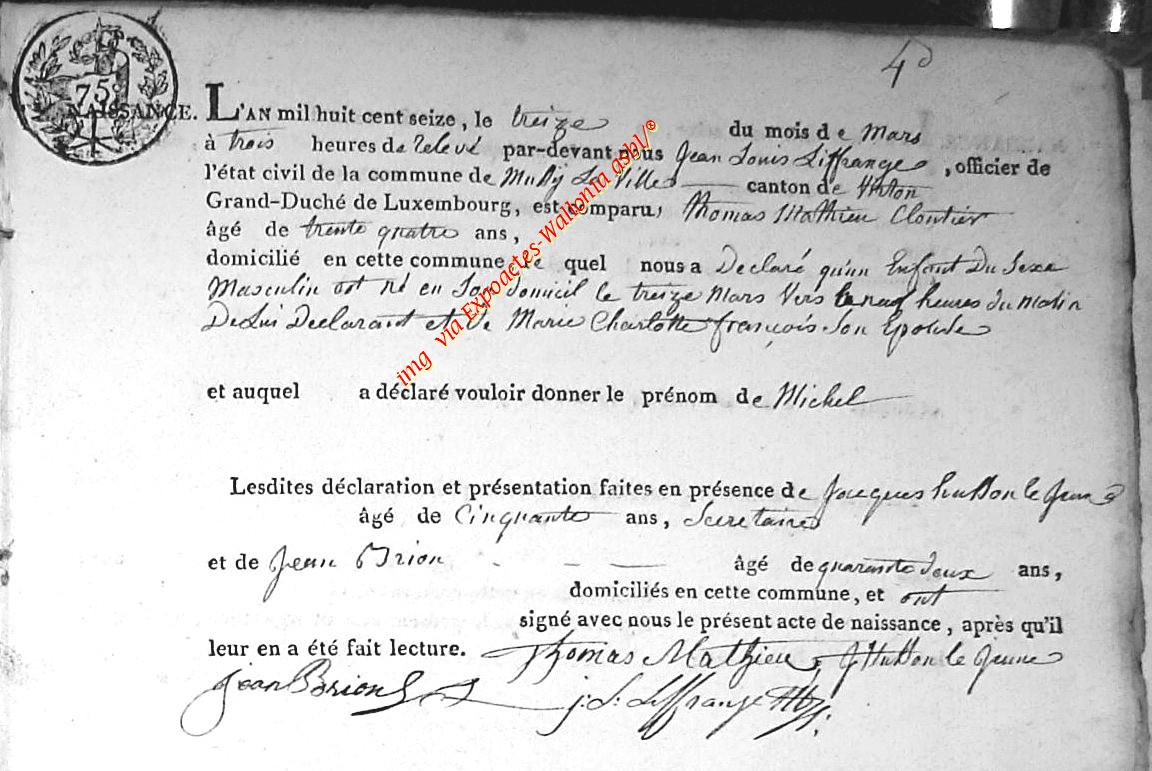 4ᵈ
75ᶜ
NAISSANCE. L'AN mil huit cent seize, le treize du mois de Mars
à trois heures de relevé par-devant nous Jean Louis Liffrange, officier de
l'état civil de la commune de Mussy La Ville canton de Virton
Grand-Duché de Luxembourg, est comparu, Thomas Mathieu Cloutier
âgé de trente quatre ans,
domicilié en cette commune le quel nous a Declaré qu'un Enfant Du Sexe
Masculin est né en Son domicil le treize Mars Vers heures du matin
De Lui Declarant et de Marie Charlotte françois Son Epouse
et auquel a déclaré vouloir donner le prénom de Michel
Lesdites déclaration et présentation faites en présence de Jacques husson le jeune
âgé de Cinquante ans, Secretaire
et de Jean Brion âgé de quarante deux ans,
domiciliés en cette commune, et ont
signé avec nous le présent acte de naissance, après qu'il
leur en a été fait lecture. Thomas Mathieu JHusson le jeune
Jean Brion j: L: Liffrange
img via Expoactes-Wallonia asbl/®